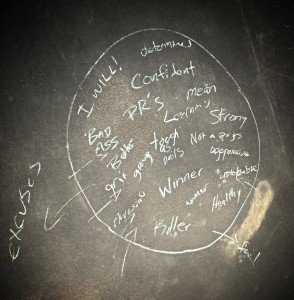 determined
I WILL!
Confident
PR's
mean
Strong
Bad
Ass
Better
tough
as
nails
Not a pussy
aggressive
grit
WINNER
unstoppable
Healthy
Killer
excuses